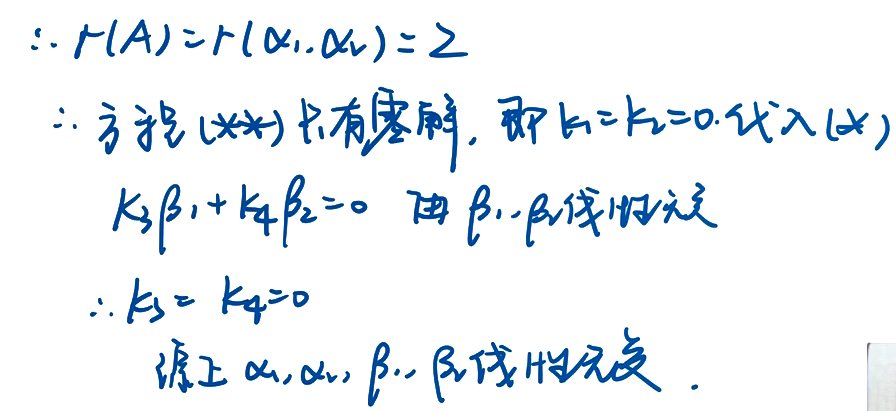 ∴ r(A)=r(α₁,α₂)=2
∴ 方程(**)只有零解,即k₁=k₂=0.代入(*)
k₃β₁+k₄β₂=0 由β₁,β₂线性无关
∴ k₃=k₄=0
综上α₁,α₂,β₁,β₂线性无关.